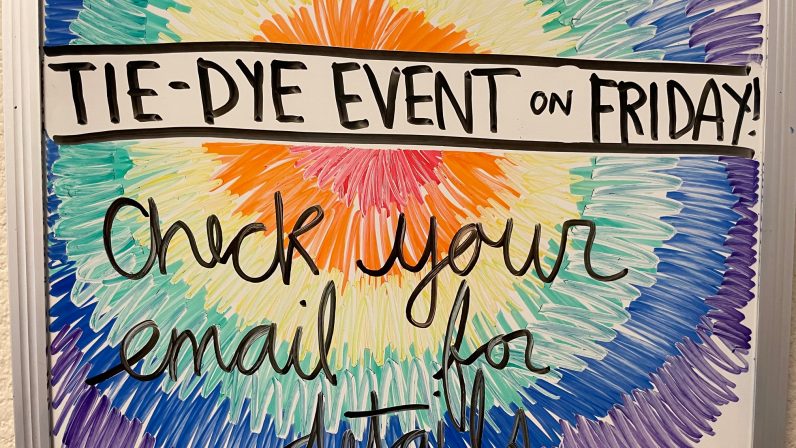 TIE-DYE EVENT ON FRIDAY!
Check your
email for
details